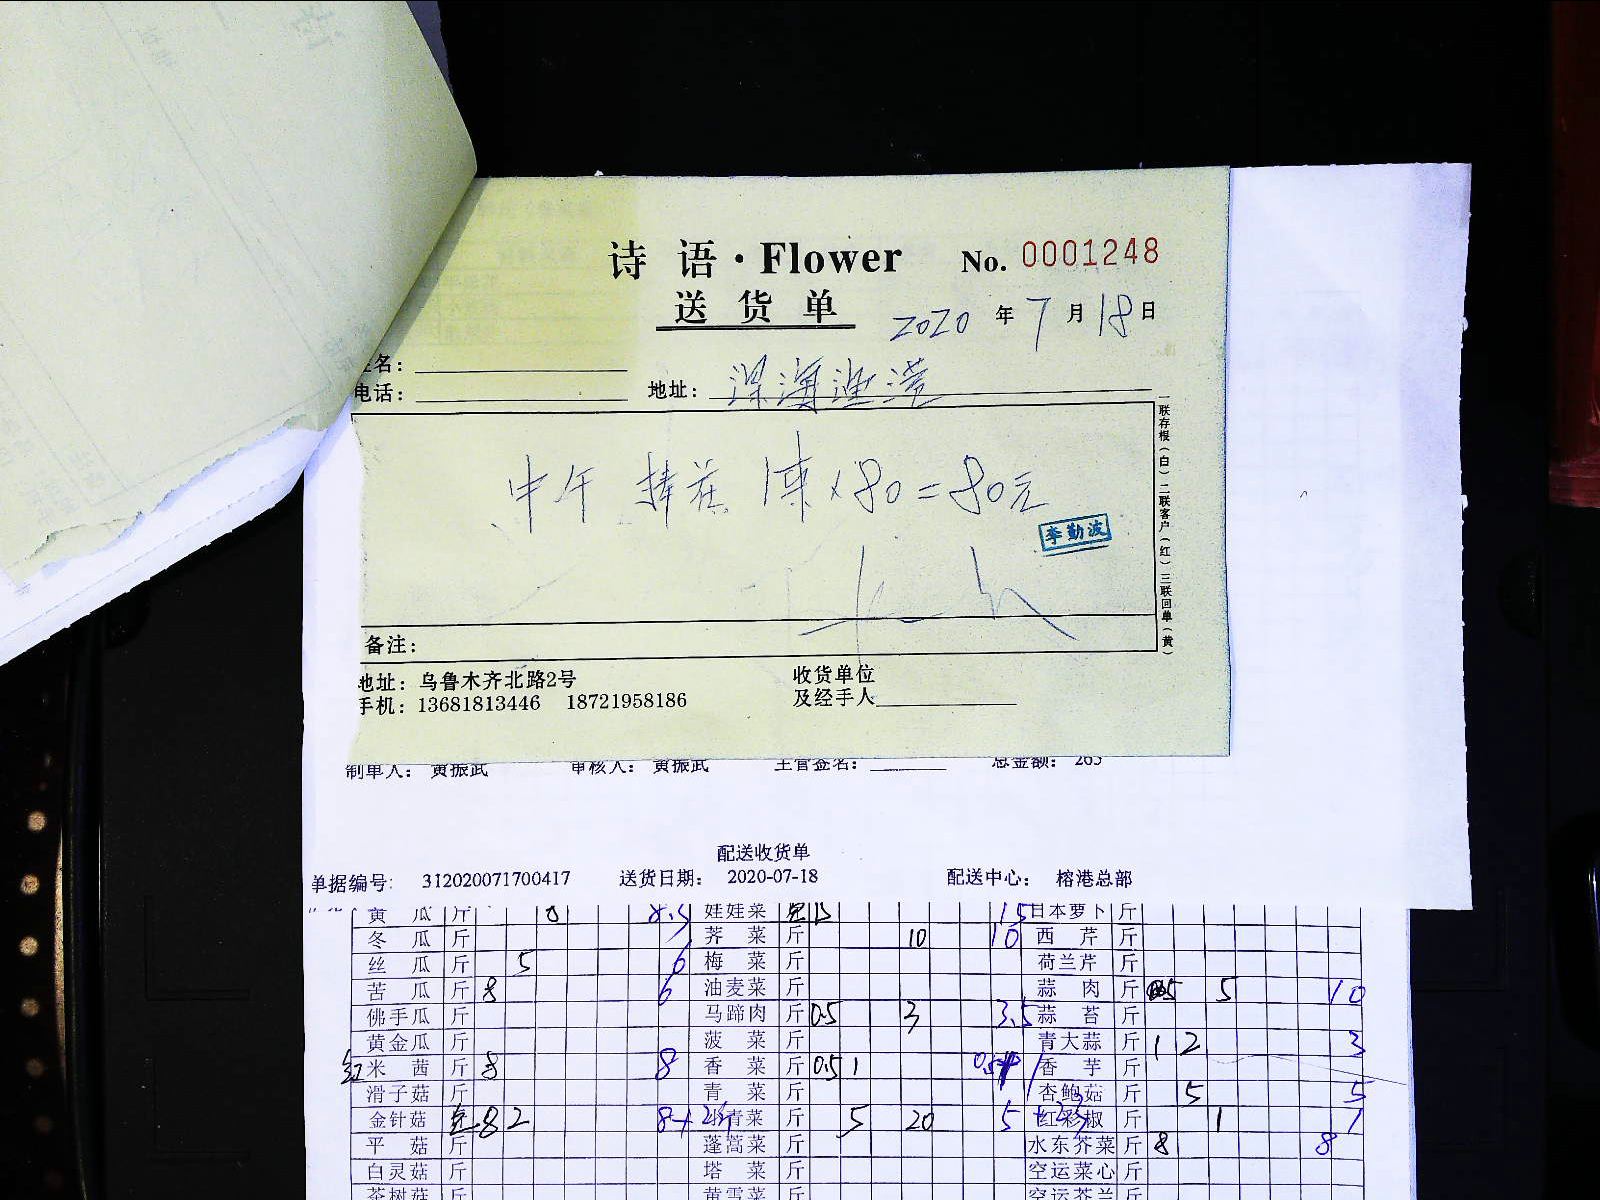 诗 语·Flower No. 0001248
送 货 单
2020 年 7 月 18 日
名：
电话： 地址：深海渔港
一联存根（白）二联客户（红）三联回单（黄）
中午 捧花 1束×80=80元
李勤波
备注：
地址：乌鲁木齐北路2号 收货单位
手机：13681813446 18721958186 及经手人
制单人： 黄振武 审核人： 黄振武 主管签名： 总金额： 265
配送收货单
单据编号： 312020071700417 送货日期： 2020-07-18 配送中心： 榕港总部
黄 瓜 斤 8 8.5 娃娃菜 包 15 15 日本萝卜 斤
冬 瓜 斤 荠 菜 斤 10 10 西 芹 斤
丝 瓜 斤 5 6 梅 菜 斤 荷兰芹 斤
苦 瓜 斤 8 6 油麦菜 斤 蒜 肉 斤 5 5 10
佛手瓜 斤 马蹄肉 斤 0.5 3 3.5 蒜 苔 斤
黄金瓜 斤 菠 菜 斤 青大蒜 斤 1 2 3
红 米 茜 斤 8 8 香 菜 斤 0.5 1 香 芋 斤
滑子菇 斤 青 菜 斤 杏鲍菇 斤 5 5
金针菇 包 8 2 8+2 小青菜 斤 5 20 5 红彩椒 斤 1 1
平 菇 斤 蓬蒿菜 斤 水东芥菜 斤 8 8
白灵菇 斤 塔 菜 斤 空运菜心 斤
茶树菇 斤 黄雪菜 斤 空运芥兰 斤